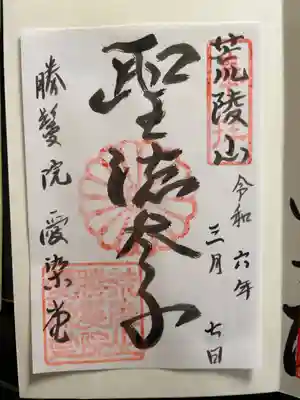 荒陵山
令和六年
三月七日
聖徳太子
勝鬘院愛染堂